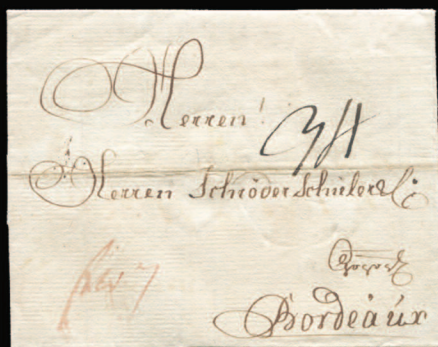 Herren!
34
Herren Schröder Schüler & C:
Bordeaux